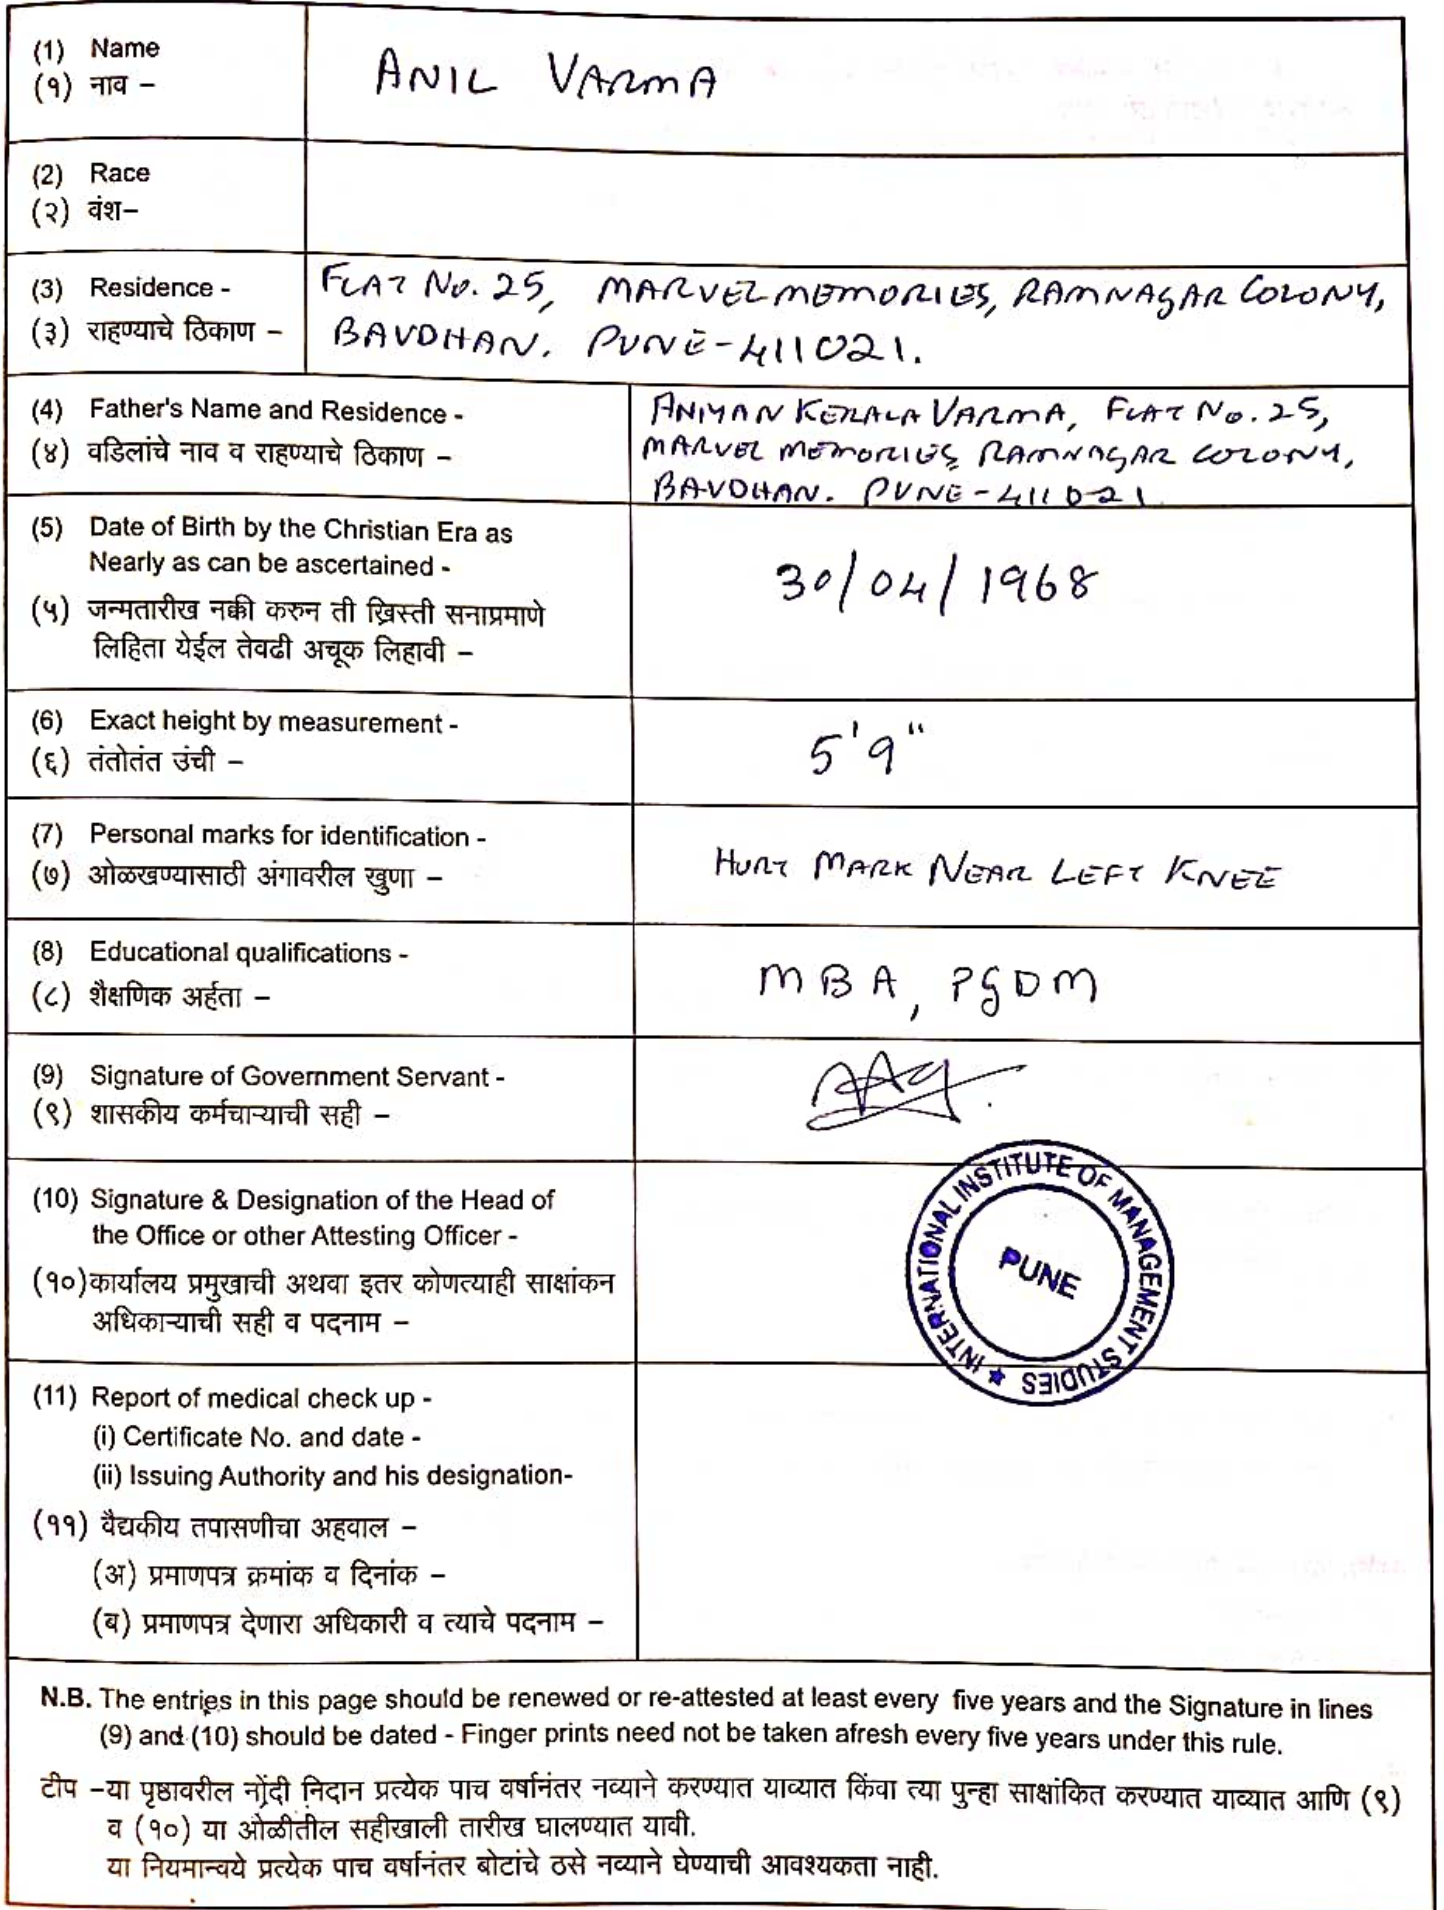 (1) Name
(१) नाव –
ANIL VARMA
(2) Race
(२) वंश–
(3) Residence -
(३) राहण्याचे ठिकाण –
FLAT No. 25, MARVEL MEMORIES, RAMNAGAR COLONY,
BAVDHAN. PUNE-411021.
(4) Father's Name and Residence -
(४) वडिलांचे नाव व राहण्याचे ठिकाण –
ANIYAN KERALA VARMA, FLAT No. 25,
MARVEL MEMORIES, RAMNAGAR COLONY,
BAVDHAN. PUNE-411021
(5) Date of Birth by the Christian Era as
Nearly as can be ascertained -
(५) जन्मतारीख नक्की करुन ती ख्रिस्ती सनाप्रमाणे
लिहिता येईल तेवढी अचूक लिहावी –
30/04/1968
(6) Exact height by measurement -
(६) तंतोतंत उंची –
5'9"
(7) Personal marks for identification -
(७) ओळखण्यासाठी अंगावरील खुणा –
HURT MARK NEAR LEFT KNEE
(8) Educational qualifications -
(८) शैक्षणिक अर्हता –
MBA, PGDM
(9) Signature of Government Servant -
(९) शासकीय कर्मचाऱ्याची सही –
(10) Signature & Designation of the Head of
the Office or other Attesting Officer -
(१०) कार्यालय प्रमुखाची अथवा इतर कोणत्याही साक्षांकन
अधिकाऱ्याची सही व पदनाम –
INTERNATIONAL INSTITUTE OF MANAGEMENT STUDIES ★
PUNE
(11) Report of medical check up -
(i) Certificate No. and date -
(ii) Issuing Authority and his designation-
(११) वैद्यकीय तपासणीचा अहवाल –
(अ) प्रमाणपत्र क्रमांक व दिनांक –
(ब) प्रमाणपत्र देणारा अधिकारी व त्याचे पदनाम –
N.B. The entries in this page should be renewed or re-attested at least every five years and the Signature in lines
(9) and (10) should be dated - Finger prints need not be taken afresh every five years under this rule.
टीप –या पृष्ठावरील नोंदी निदान प्रत्येक पाच वर्षानंतर नव्याने करण्यात याव्यात किंवा त्या पुन्हा साक्षांकित करण्यात याव्यात आणि (९)
व (१०) या ओळीतील सहीखाली तारीख घालण्यात यावी.
या नियमान्वये प्रत्येक पाच वर्षानंतर बोटांचे ठसे नव्याने घेण्याची आवश्यकता नाही.